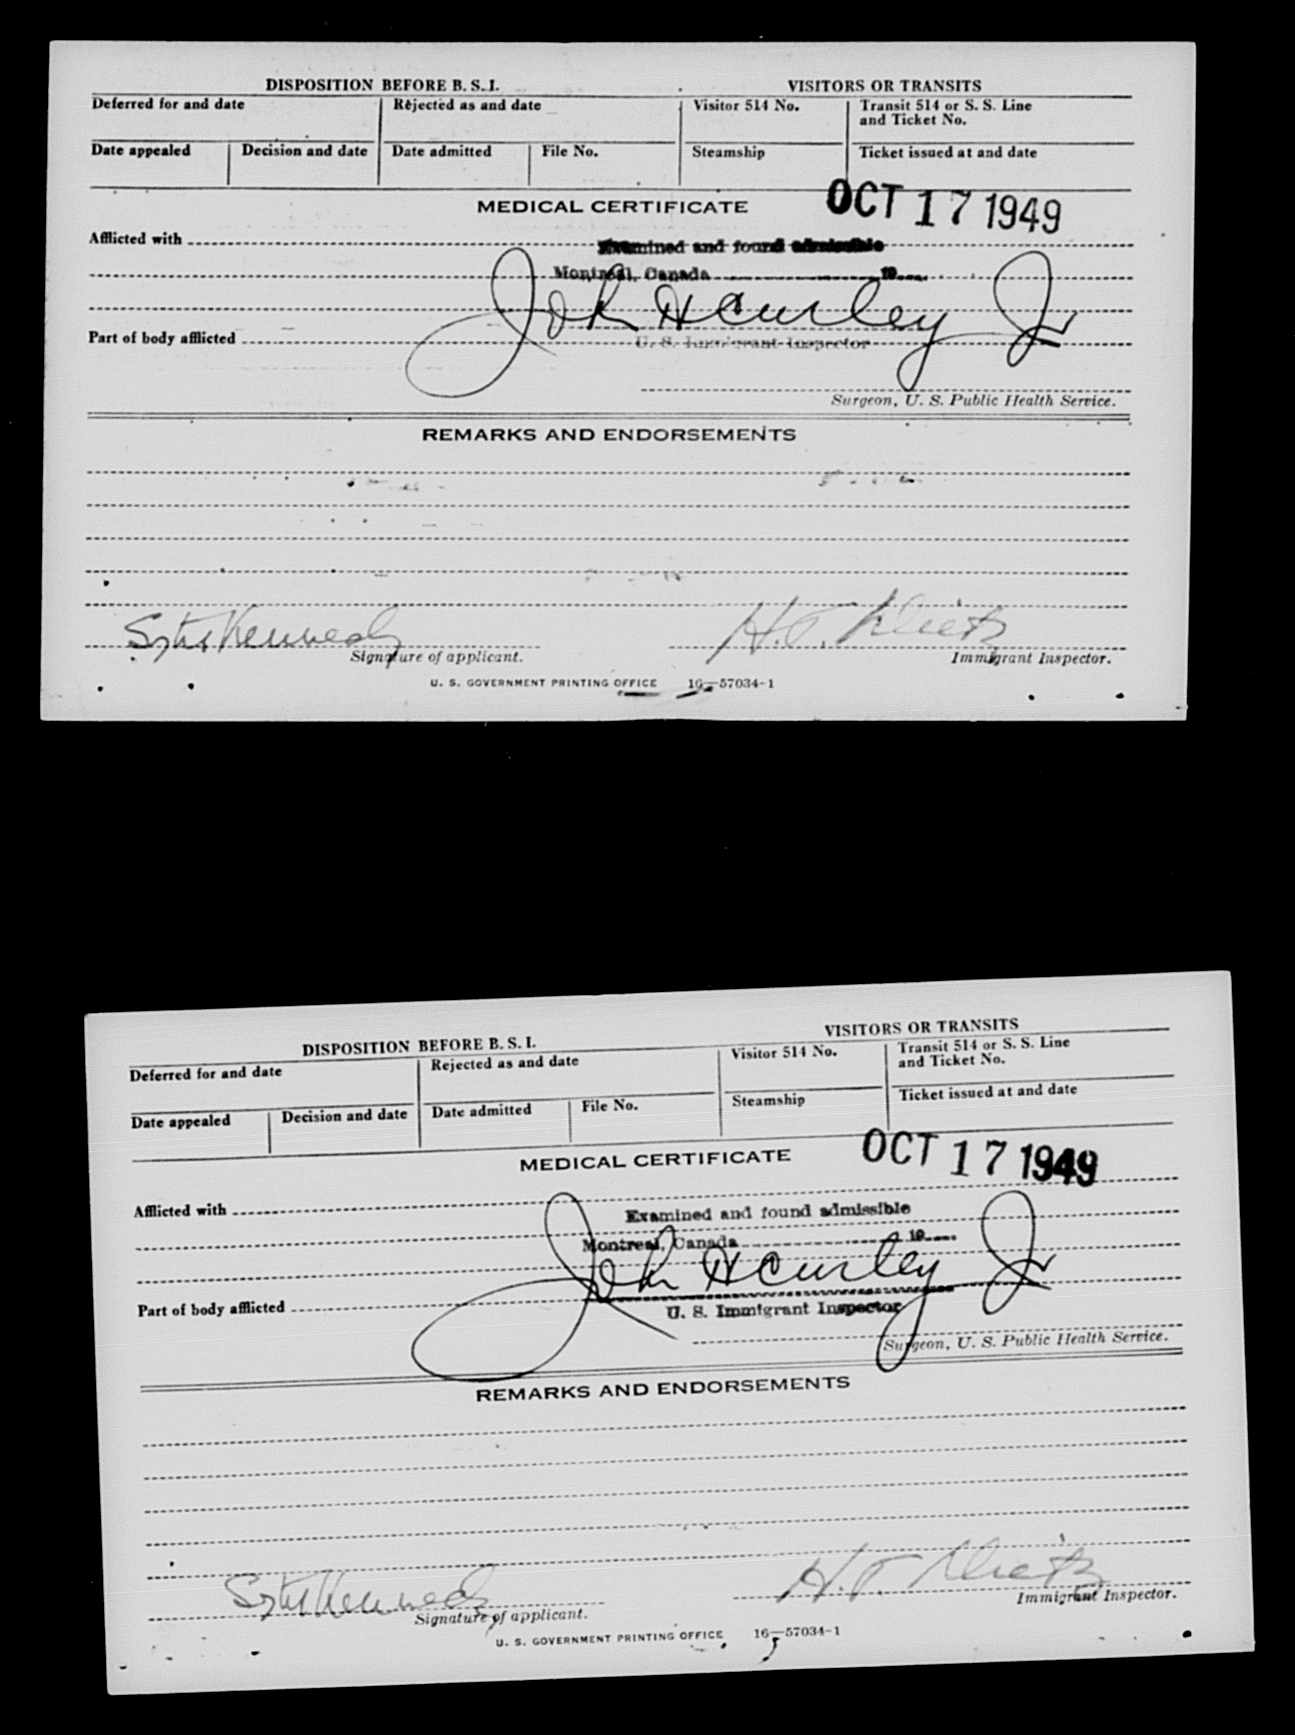 DISPOSITION BEFORE B. S. I.
VISITORS OR TRANSITS
Deferred for and date
Rejected as and date
Visitor 514 No.
Transit 514 or S. S. Line
and Ticket No.
Date appealed
Decision and date
Date admitted
File No.
Steamship
Ticket issued at and date
MEDICAL CERTIFICATE
OCT 17 1949
Afflicted with
Examined and found admissible
Montreal, Canada 19
John Hawley Jr
Part of body afflicted
U. S. Immigrant Inspector
Surgeon, U. S. Public Health Service.
REMARKS AND ENDORSEMENTS
Kennedy
H.T.
Signature of applicant.
Immigrant Inspector.
U. S. GOVERNMENT PRINTING OFFICE 16—57034-1
DISPOSITION BEFORE B. S. I.
VISITORS OR TRANSITS
Deferred for and date
Rejected as and date
Visitor 514 No.
Transit 514 or S. S. Line
and Ticket No.
Date appealed
Decision and date
Date admitted
File No.
Steamship
Ticket issued at and date
MEDICAL CERTIFICATE
OCT 17 1949
Afflicted with
Examined and found admissible
Montreal, Canada 19
John Hawley Jr
Part of body afflicted
U. S. Immigrant Inspector
Surgeon, U. S. Public Health Service.
REMARKS AND ENDORSEMENTS
Kennedy
H.T.
Signature of applicant.
Immigrant Inspector.
U. S. GOVERNMENT PRINTING OFFICE 16—57034-1